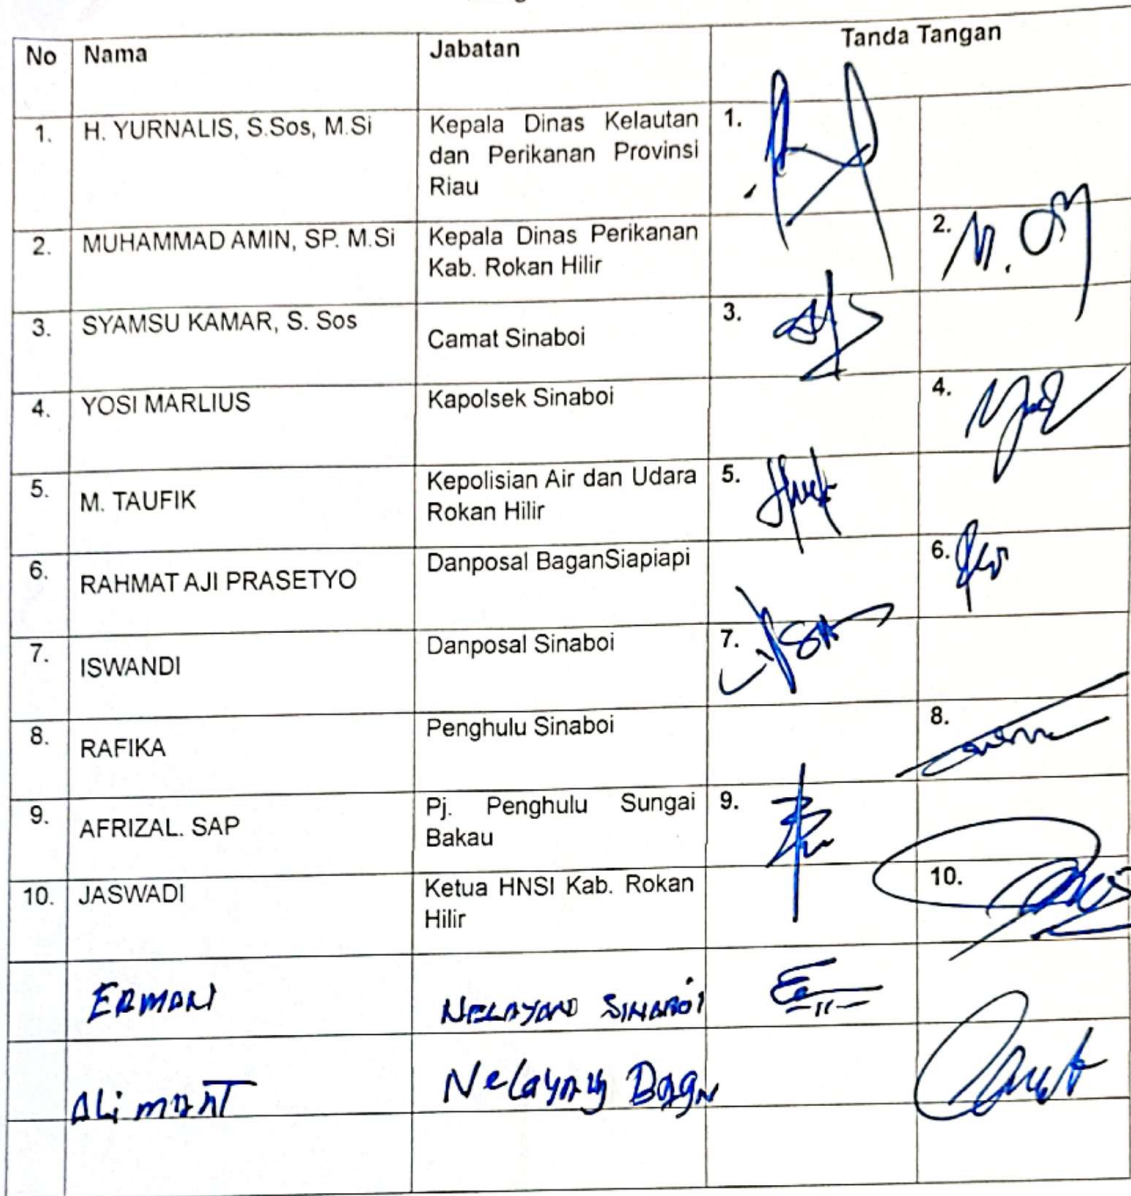 No Nama Jabatan Tanda Tangan
1. H. YURNALIS, S.Sos, M.Si Kepala Dinas Kelautan 1.
dan Perikanan Provinsi
Riau
2. MUHAMMAD AMIN, SP. M.Si Kepala Dinas Perikanan 2.
Kab. Rokan Hilir
3. SYAMSU KAMAR, S. Sos Camat Sinaboi 3.
4. YOSI MARLIUS Kapolsek Sinaboi 4.
5. M. TAUFIK Kepolisian Air dan Udara 5.
Rokan Hilir
6. RAHMAT AJI PRASETYO Danposal BaganSiapiapi 6.
7. ISWANDI Danposal Sinaboi 7.
8. RAFIKA Penghulu Sinaboi 8.
9. AFRIZAL. SAP Pj. Penghulu Sungai 9.
Bakau
10. JASWADI Ketua HNSI Kab. Rokan 10.
Hilir
SINABOI